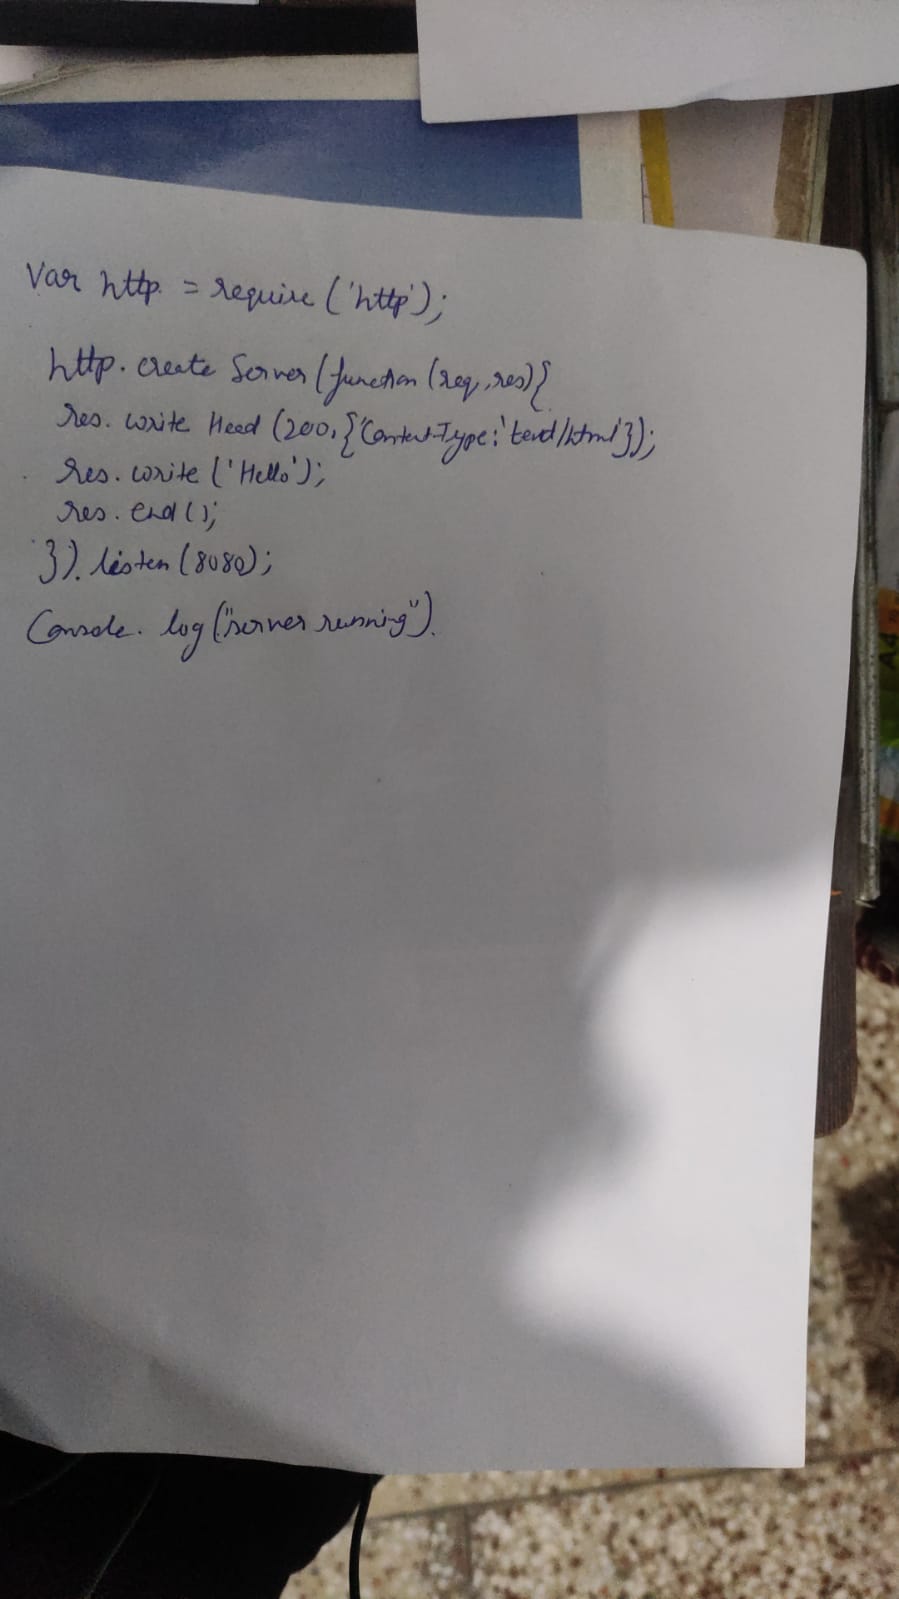 Var http = require ('http');
http. create Server (function (req, res) {
res. write Head (200, {'Content-Type:' text/html'});
res. write ('Hello');
res. end ();
}). listen (8080);
Console. log ("server running").